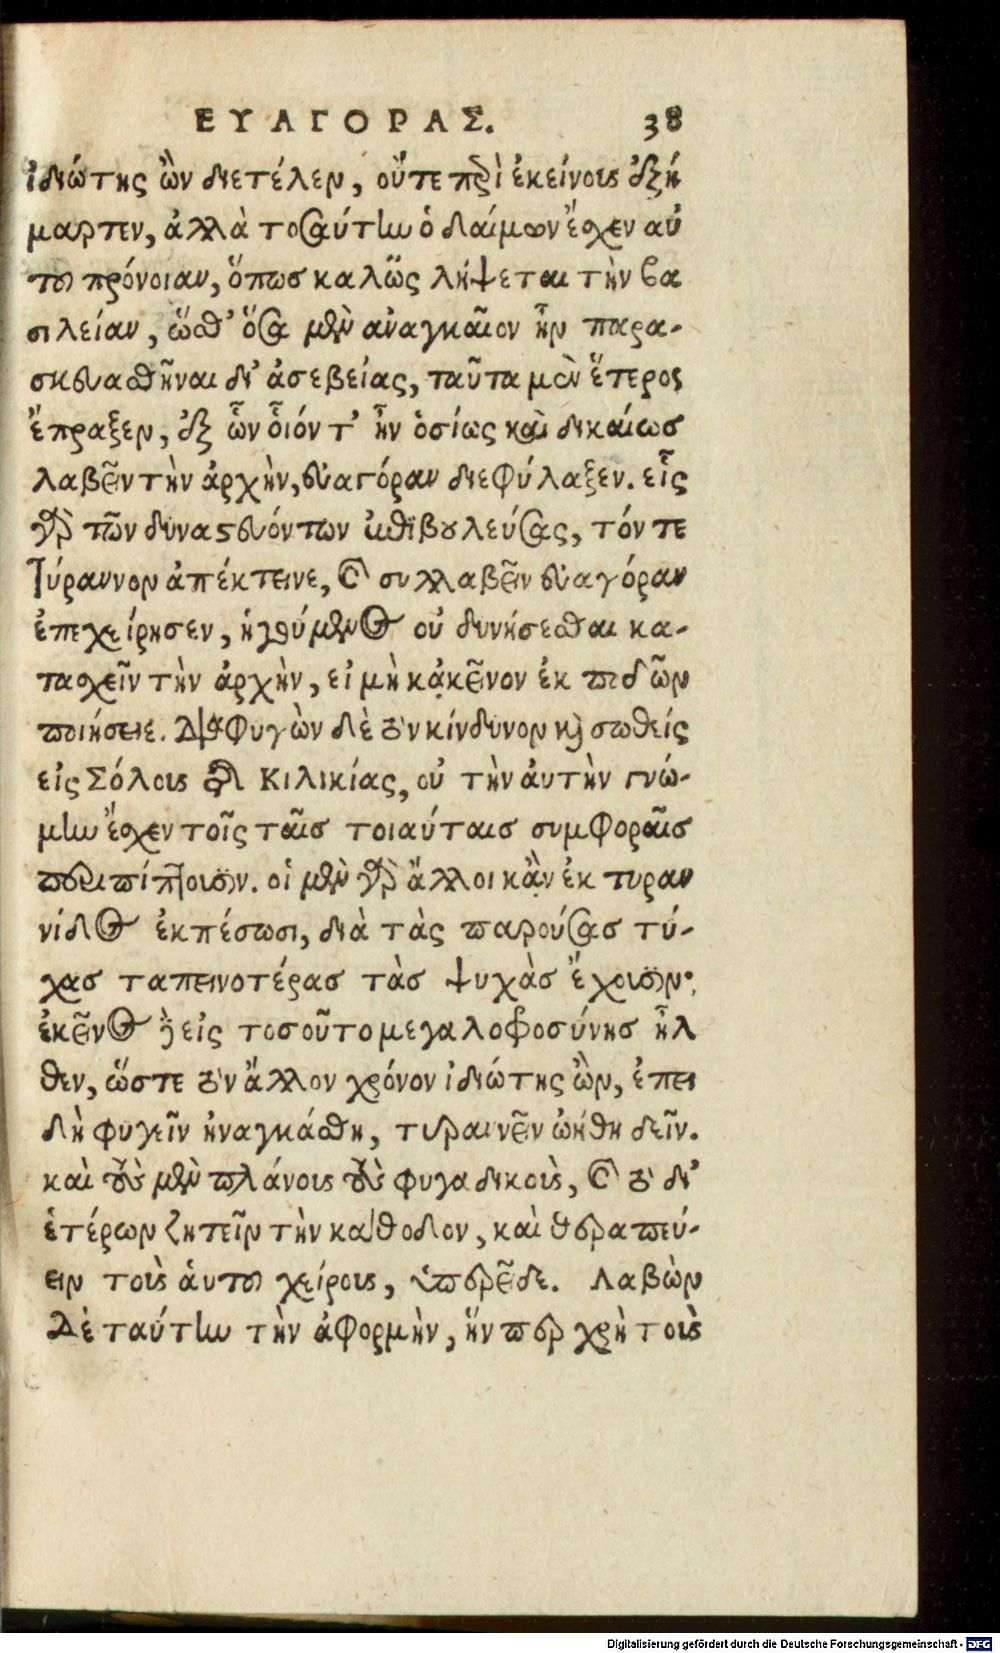 ΕΥΑΓΟΡΑΣ. 38
ἰδιώτης ὢν διετέλεν, οὔτε περὶ ἐκείνους ἐξή
μαρτεν, ἀλλὰ τοσαύτην ὁ δαίμων ἔσχεν αὐ
τοῦ πρόνοιαν, ὅπως καλῶς λήψεται τὴν βα
σιλείαν, ὥσθ' ὅσα μὲν ἀναγκαῖον ἦν παρα-
σκευασθῆναι δι' ἀσεβείας, ταῦτα μὲν ἕτερος
ἔπραξεν, ἐξ ὧν οἷόν τ' ἦν ὁσίως καὶ δικαίως
λαβεῖν τὴν ἀρχὴν, εὐαγόραν διεφύλαξεν. εἷς
γὰρ τῶν δυναστευόντων ἐπιβουλεύσας, τόν τε
τύραννον ἀπέκτεινε, καὶ συλλαβεῖν εὐαγόραν
ἐπεχείρησεν, ἡγούμενος οὐ δυνήσεσθαι κα-
τασχεῖν τὴν ἀρχὴν, εἰ μὴ κἀκεῖνον ἐκ ποδῶν
ποιήσειε. Διαφυγὼν δὲ τὸν κίνδυνον καὶ σωθείς
εἰς Σόλους τῆς Κιλικίας, οὐ τὴν ἀυτὴν γνώ-
μην ἔσχεν τοῖς ταῖς τοιαύταις συμφοραῖς
περιπίπτουσιν. οἱ μὲν γὰρ ἄλλοι κἂν ἐκ τυραν
νίδος ἐκπέσωσι, διὰ τὰς παρούσας τύ-
χας ταπεινοτέρας τὰς ψυχὰς ἔχουσιν·
ἐκεῖνος δὲ εἰς τοσοῦτο μεγαλοφροσύνης ἦλ
θεν, ὥστε τὸν ἄλλον χρόνον ἰδιώτης ὢν, ἐπει
δὴ φυγεῖν ἠναγκάσθη, τυραννεῖν ᾠήθη δεῖν.
καὶ τοὺς μὲν πλάνους τοὺς φυγαδικοὺς, καὶ τὸ δι'
ἑτέρων ζητεῖν τὴν κάθοδον, καὶ θεραπεύ-
ειν τοὺς ἁυτοῦ χείρους, ὑπερεῖδε. Λαβὼν
Δὲ ταύτην τὴν ἀφορμὴν, ἥν περ χρὴ τοὺς
Digitalisierung gefördert durch die Deutsche Forschungsgemeinschaft - DFG